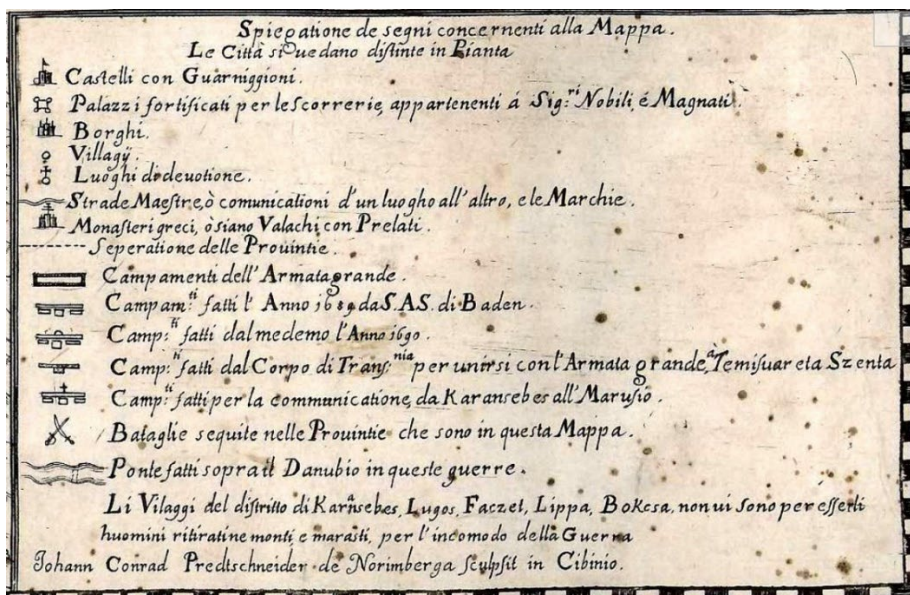 Spiegatione de segni concernenti alla Mappa.
Le Città si vedano distinte in Pianta
Castelli con Guarniggioni.
Palazzi fortificati per le scorrerie, appartenenti á Sig:ri Nobili, é Magnati.
Borghi.
Villagÿ.
Luoghi di deuotione.
Strade Maestre, ò comunicationi d'un luogho all'altro, e le Marchie.
Monasteri greci, ò siano Valachi con Prelati.
Seperatione delle Prouintie.
Campamenti dell'Armata grande.
Campam:ti fatti l'Anno 1689 da S.A.S. di Baden.
Camp:ti fatti dal medemo l'Anno 1690.
Camp:ti fatti dal Corpo di Trans:nia per unirsi con l'Armata grande, à Temisuar et a Szenta
Camp:ti fatti per la communicatione, da Karansebes all'Marusio.
Bataglie sequite nelle Prouintie che sono in questa Mappa.
Ponte fatti sopra il Danubio in queste guerre.
Li Vilaggi del distritto di Karãsebes, Lugos, Faczet, Lippa, Bokcsa, non ui sono per esserli
huomini ritirati ne monti, e marasti, per l'incomodo della Guerra
Johann Conrad Predtschneider de Norimberga sculpsit in Cibinio.